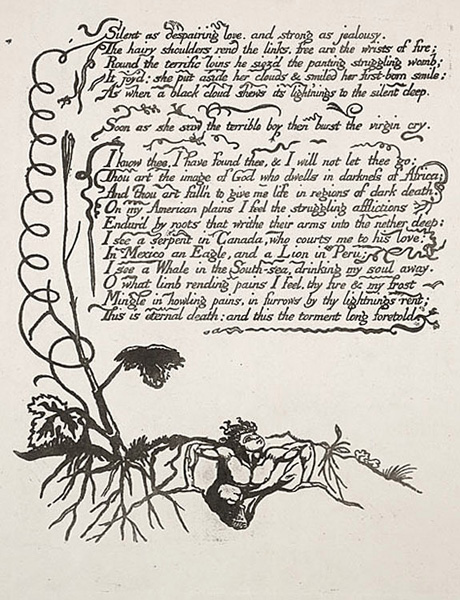 Silent as despairing love, and strong as jealousy.
The hairy shoulders rend the links, free are the wrists of fire;
Round the terrific loins he siez'd the panting struggling womb;
It joy'd: she put aside her clouds & smiled her first-born smile;
As when a black cloud shews its lightnings to the silent deep.
Soon as she saw the terrible boy then burst the virgin cry.
I know thee, I have found thee, & I will not let thee go;
Thou art the image of God who dwells in darkness of Africa;
And thou art fall'n to give me life in regions of dark death.
On my American plains I feel the struggling afflictions
Endur'd by roots that writhe their arms into the nether deep:
I see a serpent in Canada, who courts me to his love;
In Mexico an Eagle, and a Lion in Peru;
I see a Whale in the South-sea, drinking my soul away.
O what limb rending pains I feel, thy fire & my frost
Mingle in howling pains, in furrows by thy lightnings rent;
This is eternal death; and this the torment long foretold.